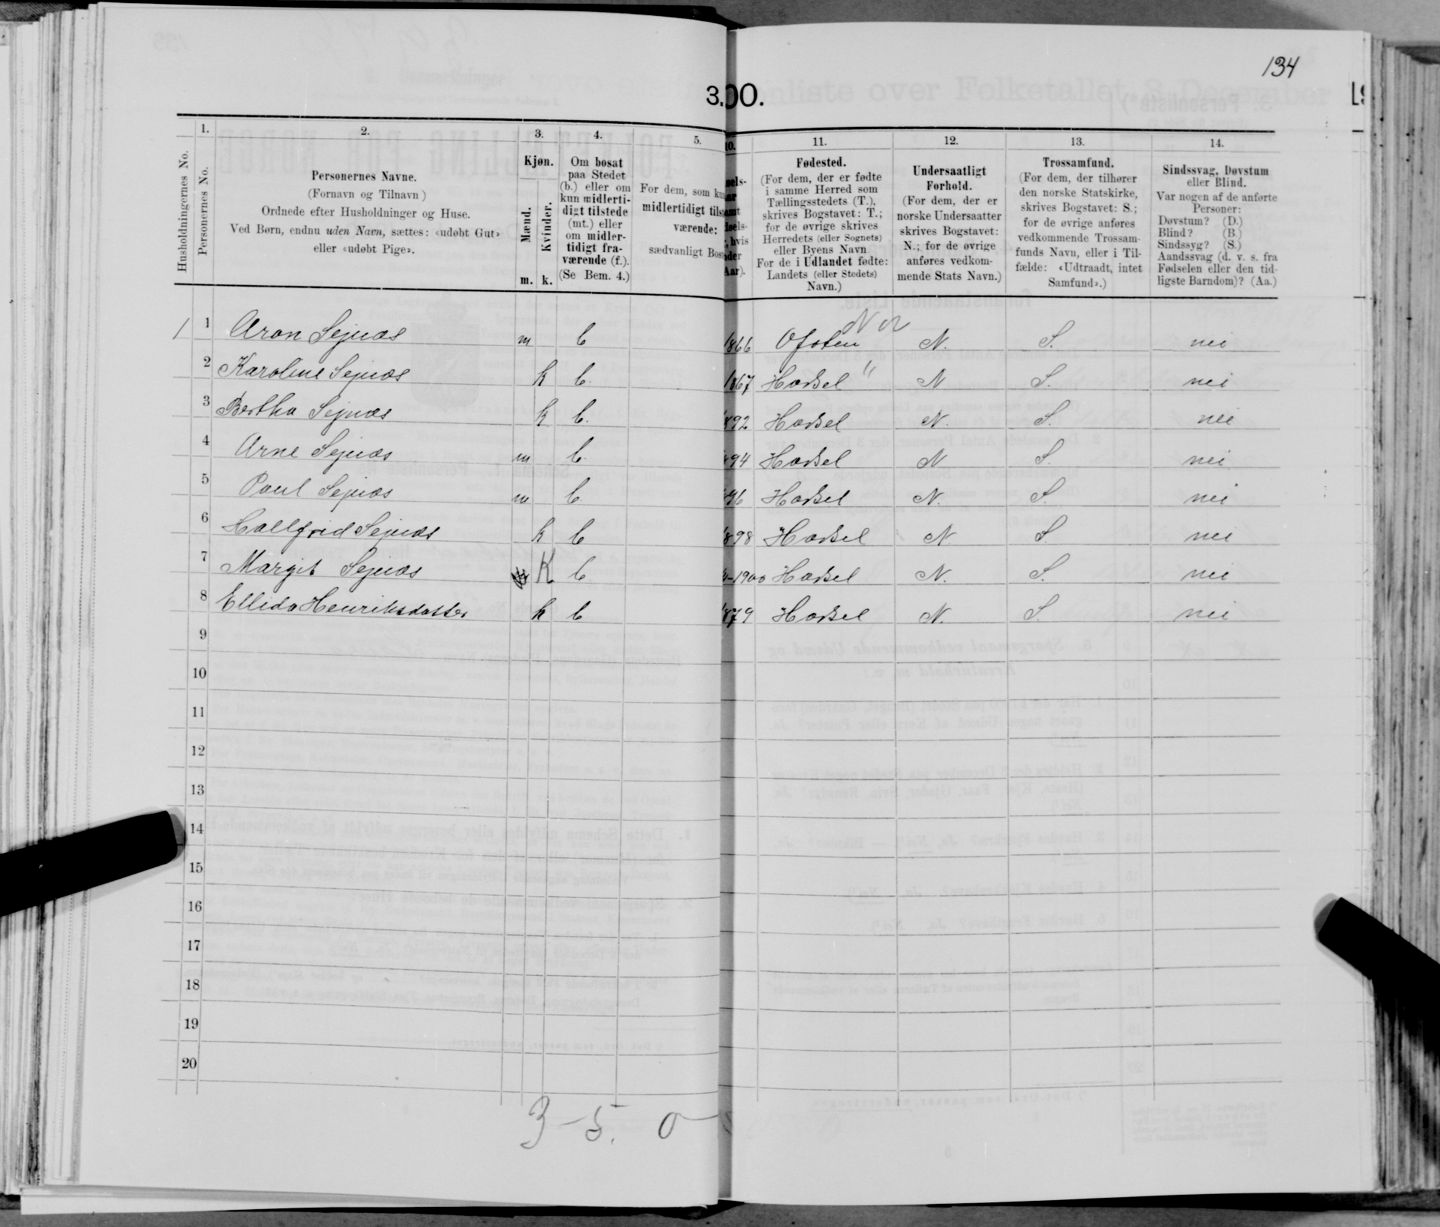 134
3.
00.
Husholdningernes No.
1.
Personernes No.
2.
Personernes Navne.
(Fornavn og Tilnavn)
Ordnede efter Husholdninger og Huse.
Ved Børn, endnu uden Navn, sættes: «udøbt Gut»
eller «udøbt Pige».
3.
Kjøn.
Mænd.
Kvinder.
m. k.
4.
Om bosat
paa Stedet
(b.) eller om
kun midlerti-
digt tilstede
(mt.) eller
om midler-
tidigt fra-
værende (f.).
(Se Bem. 4.)
5.
For dem, som kun
midlertidigt tils
værende:
sædvanligt Bos
11.
Fødested.
(For dem, der er fødte
i samme Herred som
Tællingsstedets (T.),
skrives Bogstavet: T.;
for de øvrige skrives
Herredets (eller Sognets)
eller Byens Navn
For de i Udlandet fødte:
Landets (eller Stedets)
Navn.)
12.
Undersaatligt
Forhold.
(For dem, der er
norske Undersaatter
skrives Bogstavet:
N.; for de øvrige
anføres vedkom-
mende Stats Navn.)
13.
Trossamfund.
(For dem, der tilhører
den norske Statskirke,
skrives Bogstavet: S.;
for de øvrige anføres
vedkommende Trossam-
funds Navn, eller i Til-
fælde: «Udtraadt, intet
Samfund».)
14.
Sindssvag, Døvstum
eller Blind.
Var nogen af de anførte
Personer:
Døvstum? (D.)
Blind? (B.)
Sindssyg? (S.)
Aandssvag (d. v. s. fra
Fødselen eller den tid-
ligste Barndom)? (Aa.)
1 1 Aron Sejnæs m b 1866 Ofoten N. S. nei
2 Karoline Sejnæs k b. 1867 Hadsel " N S. nei
3 Bertha Sejnæs k b. 892 Hadsel N. S. nei
4 Arne Sejnæs m b. 94 Hadsel N S. nei
5 Paul Sejnæs m b 96 Hadsel N. S nei
6 Hallfrid Sejnæs k b 898 Hadsel N S nei
7 Margit Sejnæs K b 1900 Hadsel N. S. nei
8 Ellida Henriksdatter k b 879 Hadsel N. S. nei
9
10
11
12
13
14
15
16
17
18
19
20
3-5. 0